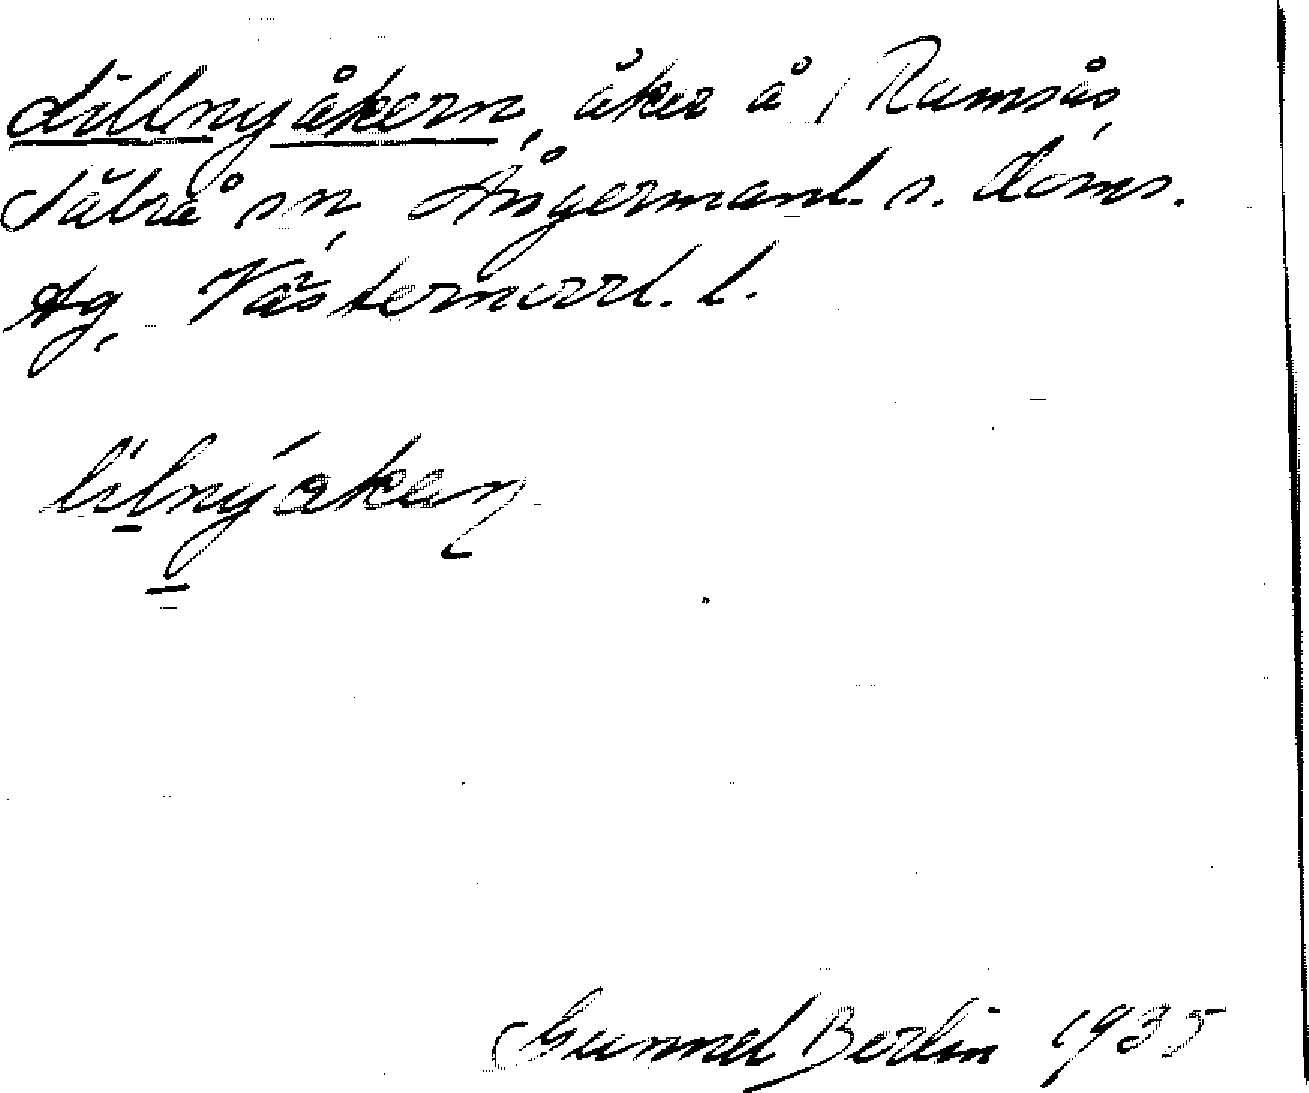 Lillnyåkern, åker å Ramsås,
Säbrå sn, Ångermanl. s. doms.
tg, Västernorrl. l.
lilnýakeɳ
Gunnel Berlin 1935